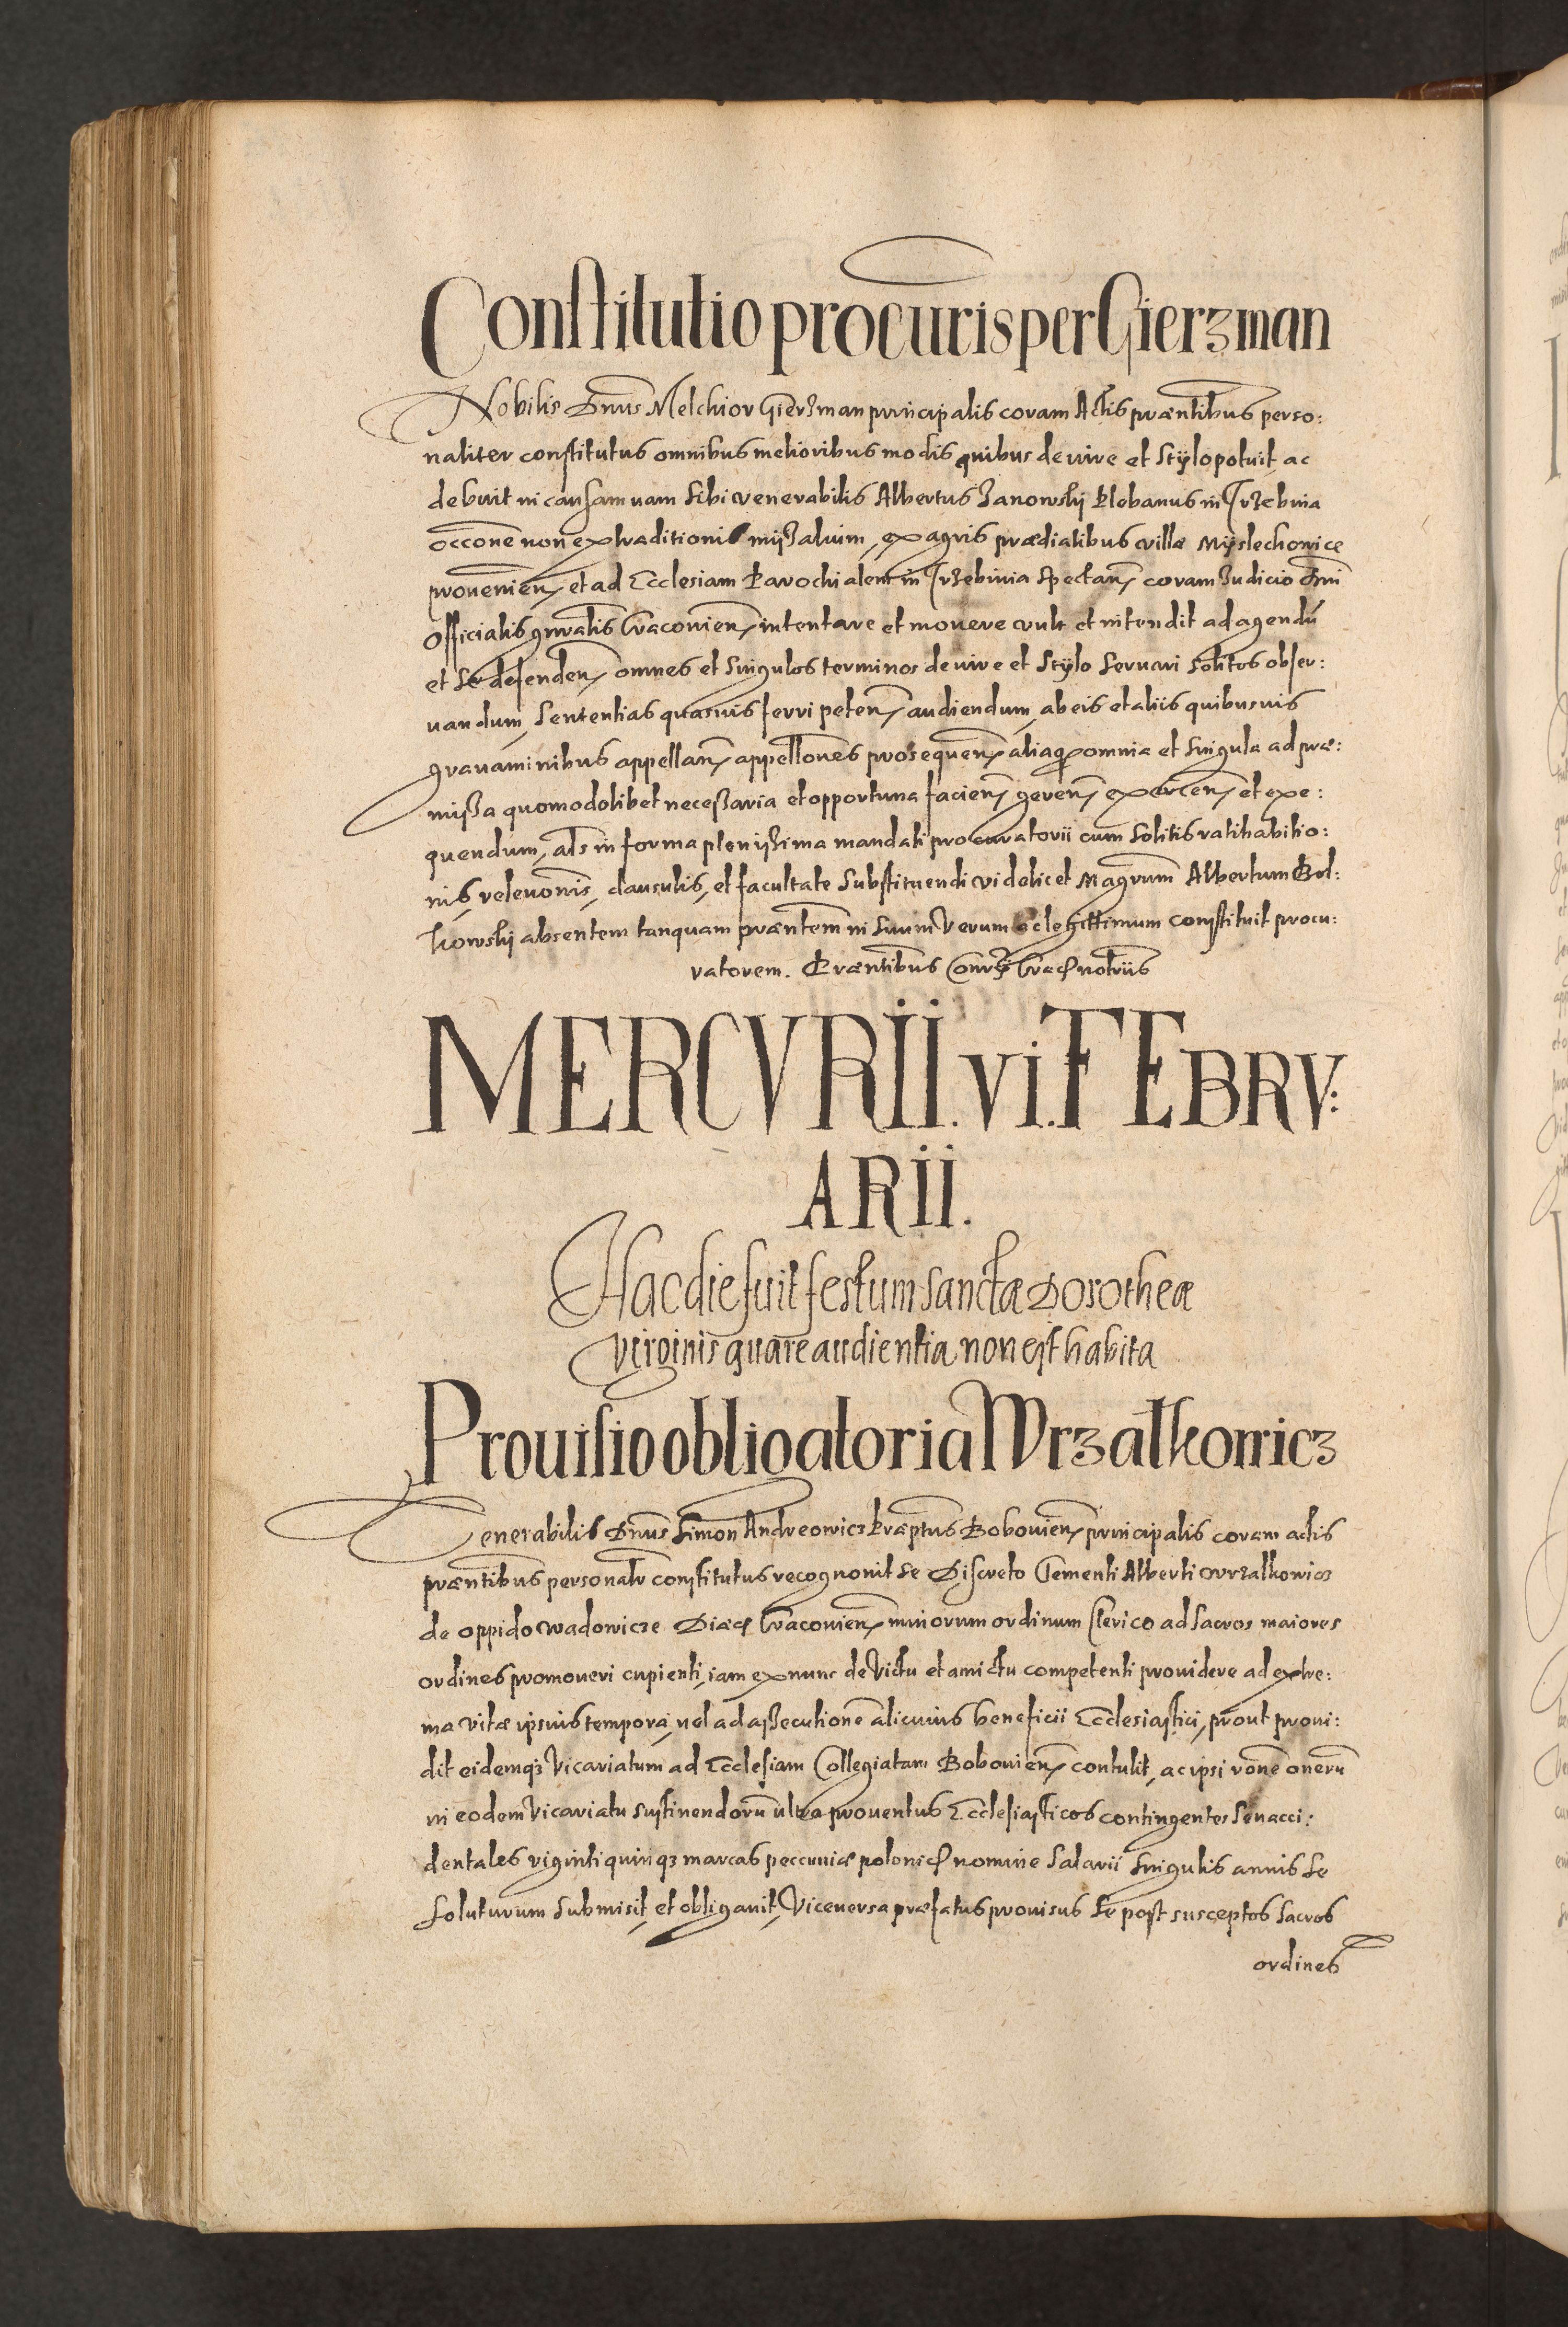 Constitutio procuris per Gierzman
Nobilis Dnus Melchior Gierzman principalis coram Actis praentibus perso:
naliter constitutus omnibus melioribus modis quibus de iure et Stylo potuit ac
debuit in causam uam sibi venerabilis Albertus Janowskj Plebanus in Trzebinia
occone non extraditionis myssalium, ex agris praedialibus villae Myslechowice
prouenien, et ad Ecclesiam Parochialem in Trzebinia spectan, coram Judicio Dni
Officialis gnralis Cracouien, intentare et mouere vult et intendit ad agendu
et se defenden, omnes et singulos terminos de iure et Stylo seruari solitos obser:
uandum, sententias quasuis ferri peten, audiendum, ab eis et aliis quibusuis
grauaminibus appellan, appellones prosequen, aliaq omnia et singula ad prae:
missa quomodolibet necessaria et opportuna facien, geren, exercen, et exe:
quendum, als in forma plenissima mandati procuratorii cum solitis ratihabitio:
nis, releuonis, clausulis, et facultate substituendi videlicet Magrum Albertum Bol:
kowskj absentem tanquam praentem in suum Verum ac legittimum constituit procu:
ratorem. Praentibus Cons Crac notriis
MERCVRII. VI. FEBRV:
ARII.
Hac die fuit festum sanctae Dorotheae
virginis quare audientia non est habita
Prouisio obligatoria Wrzalkowicz
Venerabilis Dnus Simon Andreowicz Praeptus Bobouien, principalis coram actis
praentibus personalr constitutus recognouit se Discreto Clementi Alberti Wrzalkowicz
de oppido Wadowicze Diaec Cracouien, minorum ordinum Clerico ad Sacros maiores
ordines promoueri cupienti, iam ex nunc de Victu et amictu competenti prouidere ad extre:
ma vitae ipsius tempora, uel ad assecutione alicuius beneficii Ecclesiastici, prout proui:
dit eidemq3 Vicariatum ad Ecclesiam Collegiatam Bobouien, contulit, ac ipsi rone oneru
in eodem Vicariatu sustinendoru ultra prouentus Ecclesiasticos contingentes seu acci:
dentales viginti quinq3 marcas peccuniae polonic nomine Salarii singulis annis se
soluturum submisit, et obligauit, Viceuersa praefatus prouisus se post susceptos sacros
ordines